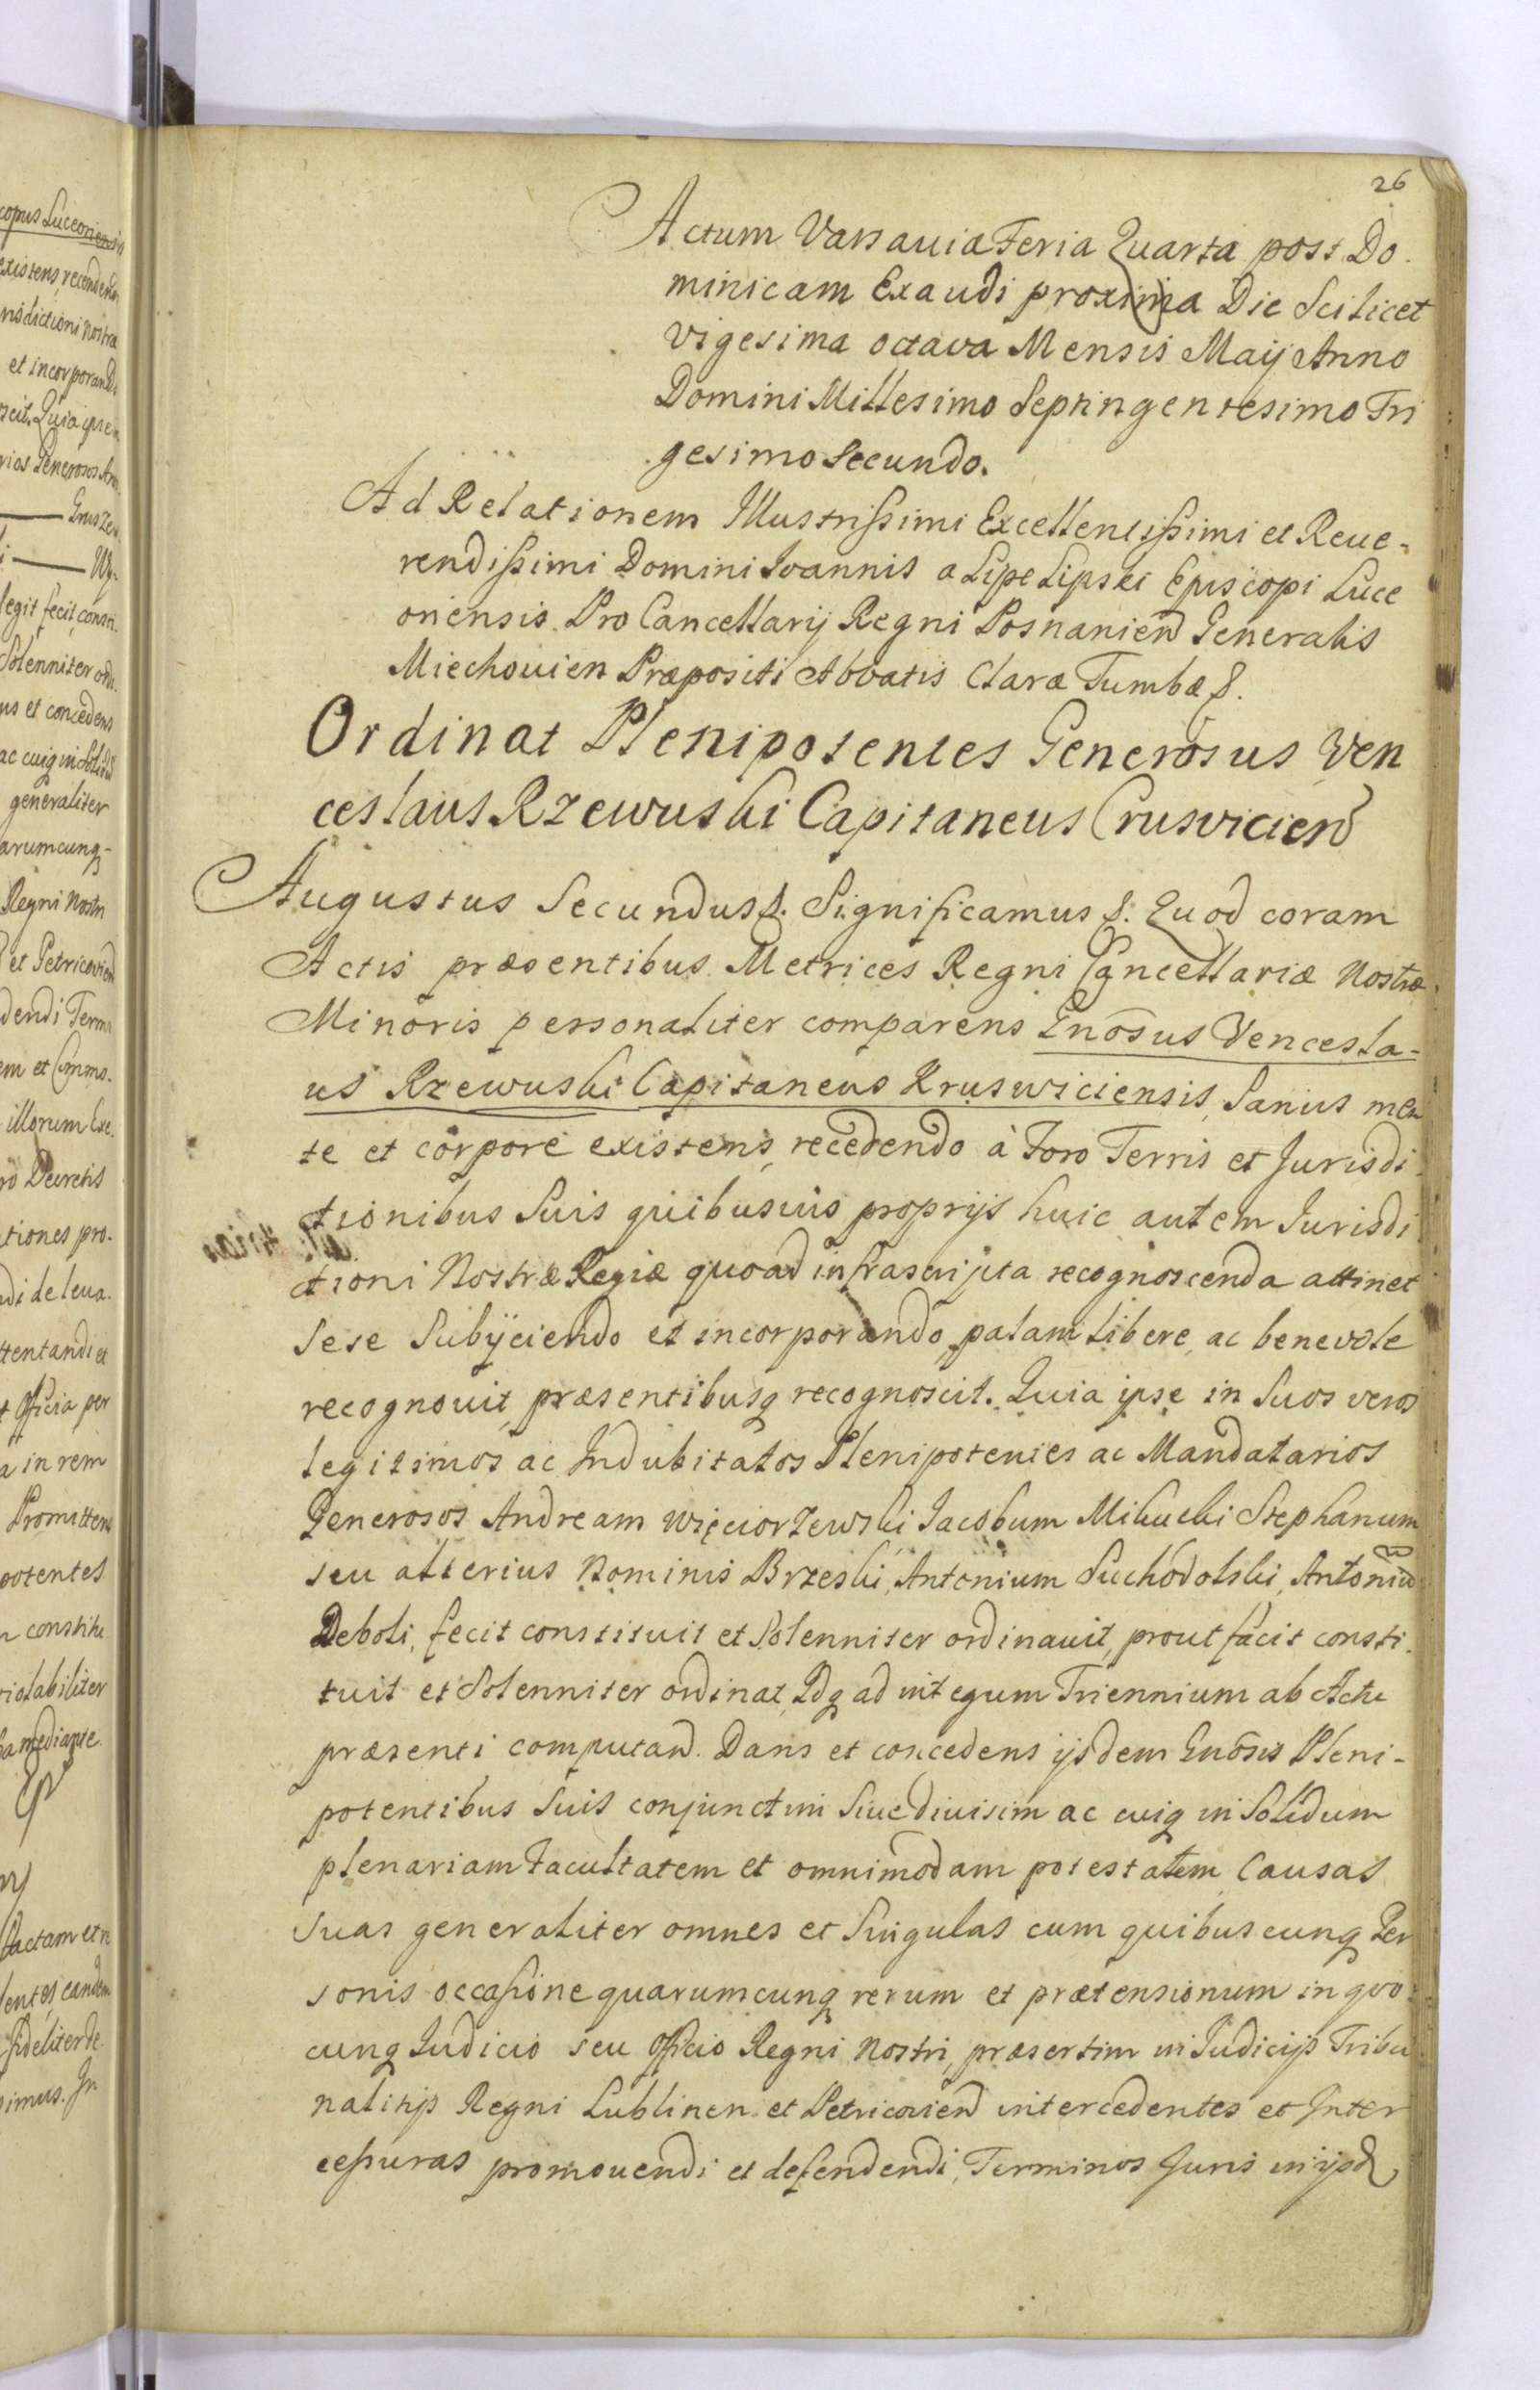 copus Luceoriensis
existens, recedendo
risdictioni nostræ
et incorporando
oscit. Quia ipse
rios Generosos An
legit fecit consti
Solenniter ordi
ns et concedens
ac cuiq in Solid
generaliter
arumcunq
Regni Nostri
et Petricovien
dendi Termi
em et Commo.
illorum Exe.
ro Decretis
ctiones pro.
di de leua.
ttentandi et
t Officia per
a in rem
Promittens
potentes
n constitu
violabiliter
mediante
factam et n
lentes eandem
fideliter de
simus. In
26
Actum Varsauiæ Feria Quarta post Do.
minicam Exaudi proxima Die Scilicet
vigesima octava Mensis Maij Anno
Domini Millesimo Septingentesimo Tri
gesimo Secundo.
Ad Relationem Illustrissimi Excellentissimi et Reue-
rendissimi Domini Ioannis a Lipe Lipski Episcopi Luce
oriensis Pro Cancellarij Regni Posnanien Generalis
Miechouien Præpositi Abbatis Claræ Tumbæ &.
Ordinat Plenipotentes Generosus Ven
ceslaus Rzewuski Capitaneus Crusvicien
Augustus Secundus &. Significamus &. Quod coram
Actis præsentibus Metrices Regni Cancellariæ Nostræ
Minoris personaliter comparens Gnosus Vencesla-
us Rzewuski Capitaneus Kruswiciensis, Sanus men
te et corpore existens, recedendo à Foro Terris et Jurisdi
ctionibus Suis quibusuis proprijs huic autem Iurisdi
ctioni Nostræ Regiæ quoad infrascripta recognoscenda attinet
Sese Subijciendo et incorporando, palam libere, ac benevole
recognouit, præsentibusq recognoscit. Quia ipse in Suos veros
legitimos ac Indubitatos Plenipotentes ac Mandatarios
Generosos Andream Więciorzewski Iacobum Mikucki Stephanum
seu alterius Nominis Brzeski, Antonium Suchodolski, Antoniu
Deboli, fecit constituit et Solenniter ordinauit, prout facit consti.
tuit et Solenniter ordinat, Idq ad integum Triennium ab Actu
præsenti computand. Dans et concedens ijsdem Gnosis Pleni-
potentibus Suis conjunctim Siue diuisim ac cuiq in Solidum
plenariam Facultatem et omnimodam potestatem Causas
suas generaliter omnes et Singulas cum quibuscunq Per
sonis occasione quarumcunq rerum et prætensionum in quo
cunq Iudicio seu Officio Regni Nostri, præsertim in Iudicijs Tribu
nalitijs Regni Lublinen et Petricovien intercedentes et Inter
cessuras promouendi et defendendi, Terminos Juris in ijsd